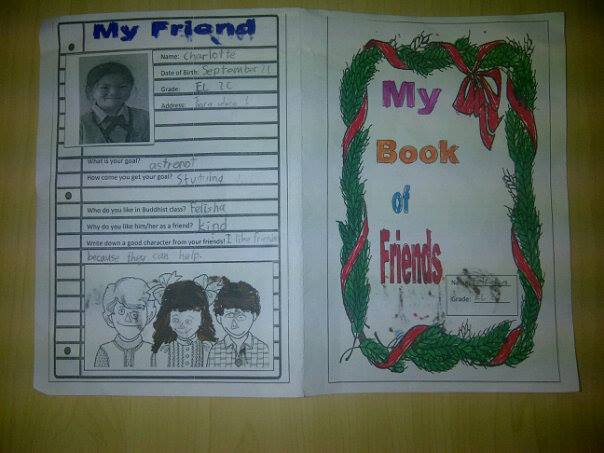 My Friend
Name: Charlotte
Date of Birth: September
Grade: EL 2C
Address:
What is your goal? astronot
How come you get your goal?
Who do you like in Buddhist class? Felisha
Why do you like him/her as a friend? kind
Write down a good character from your friends! I like Friends
because they can help.
My
Book
of
Friends
Grade: